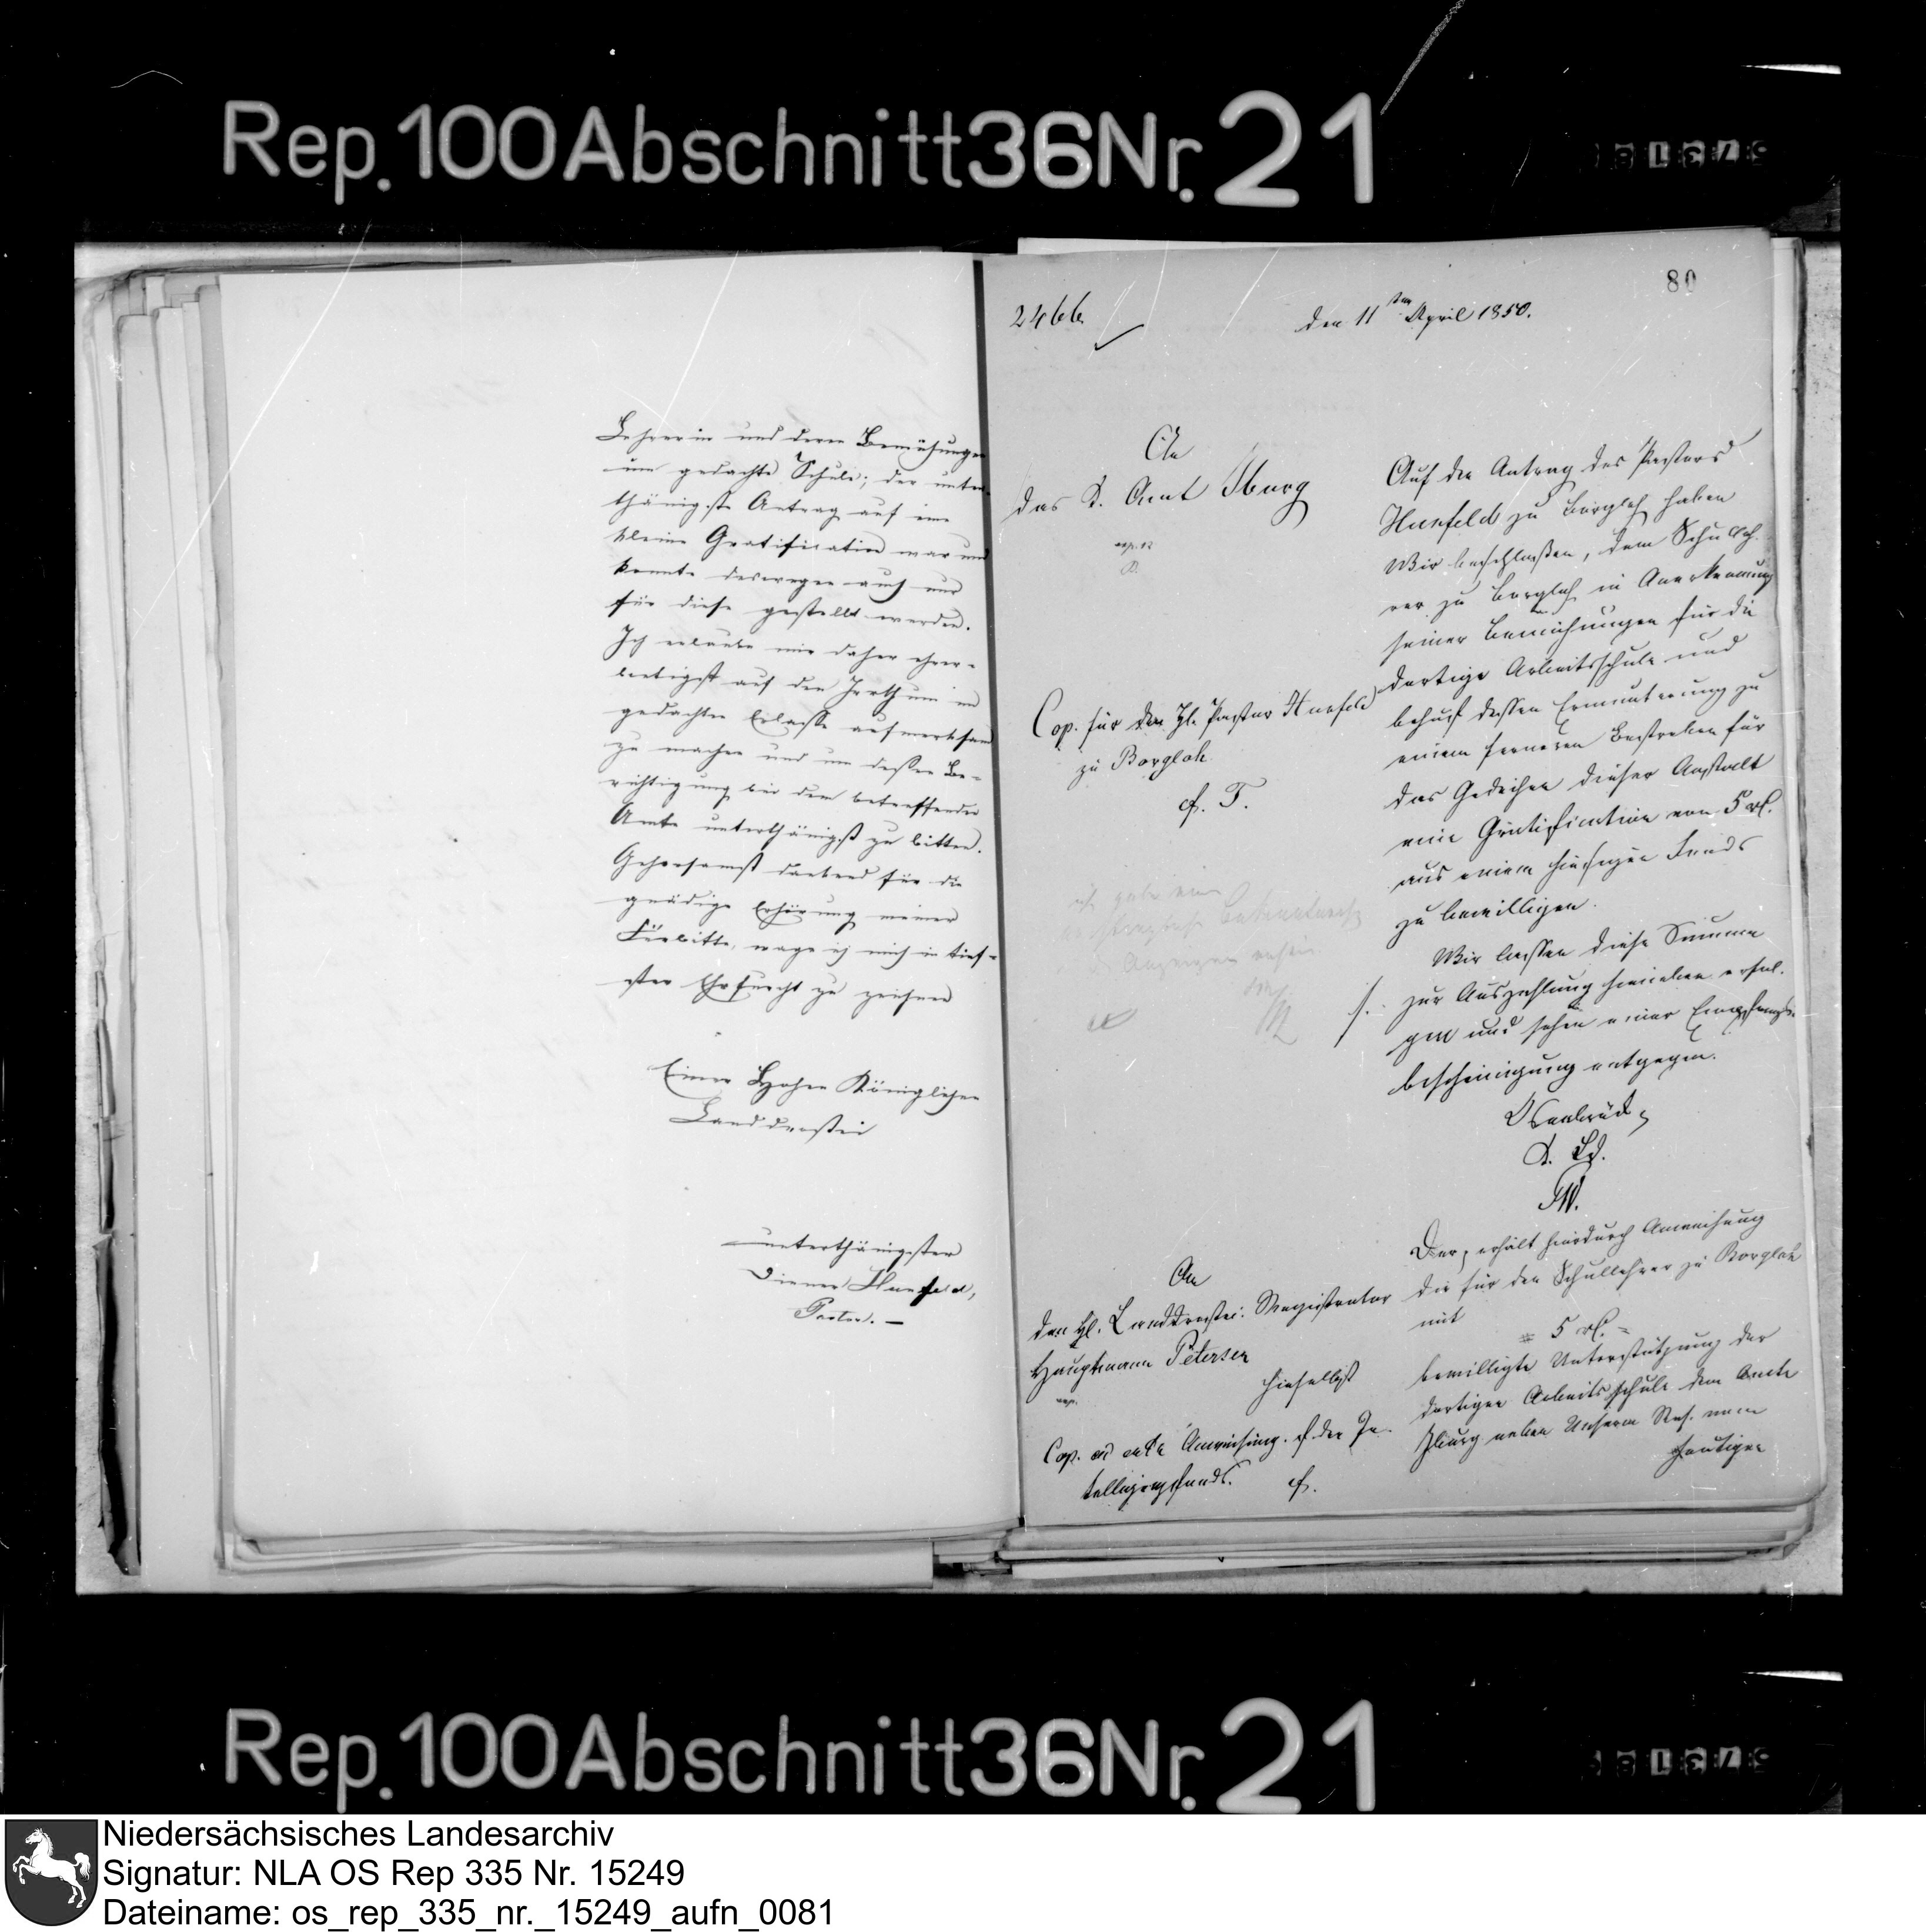 Rep. 100 Abschnitt 36 Nr. 21
Lehrerin und deren Bemühungen
um gedachte Schule; der unter-
thänigste Antrag auf eine
kleine Gratification war und
konnte deswegen auch nur
für diese gestellt werden.
Ich erlaube mir daher ehrer-
bietigst auf den Irrthum im
gedachten Erlasse aufmerksam
zu machen und um dessen Be-
richtigung bei dem betreffenden
Amte unterthänigst zu bitten.
Gehorsamst dankend für die
gnädige Erhörung meiner
Fürbitte, wage ich mich in tief-
ster Ehrfurcht zu zeichnen
Einer Hohen Königlichen
Landdrostei
unterthänigster
Diener Hunfeld,
Pastor. —
80
2466
den 11ten April 1850.
An
das K. Amt Iburg
Cop. für den Hl. Pastor Hunfeld
zu Borgloh
Auf den Antrag des Pastors
Hunfeld zu Borgloh haben
Wir beschlossen, dem Schulleh-
rer zu Borgloh in Anerkennung
seiner Bemühungen für die
dortige Arbeitsschule und
behuf dessen Ermunterung zu
einem ferneren Bestreben für
das Gedeihen dieser Anstalt
eine Gratification von 5 rl.
aus einem hiesigen Fonds
zu bewilligen.
Wir lassen diese Summe
zur Auszahlung hieneben erfol-
gen und sehen einer Empfangs-
bescheinigung entgegen.
Osnabrück
K. LD.
An
den Hl. Landdrostei: Registrator
Hauptmann Petersen
hieselbst
Cop. ad acta Anweisung. a. d. In-
telligenzfonds.
Der, erhält hierdurch Anweisung
die für den Schullehrer zu Borgloh
mit
= 5 rl. =
bewilligte Unterstützung der
dortigen Arbeitsschule dem Amte
Iburg neben Unserm Res. vom
heutigen
Rep. 100 Abschnitt 36 Nr. 21
Niedersächsisches Landesarchiv
Signatur: NLA OS Rep 335 Nr. 15249
Dateiname: os_rep_335_nr._15249_aufn_0081